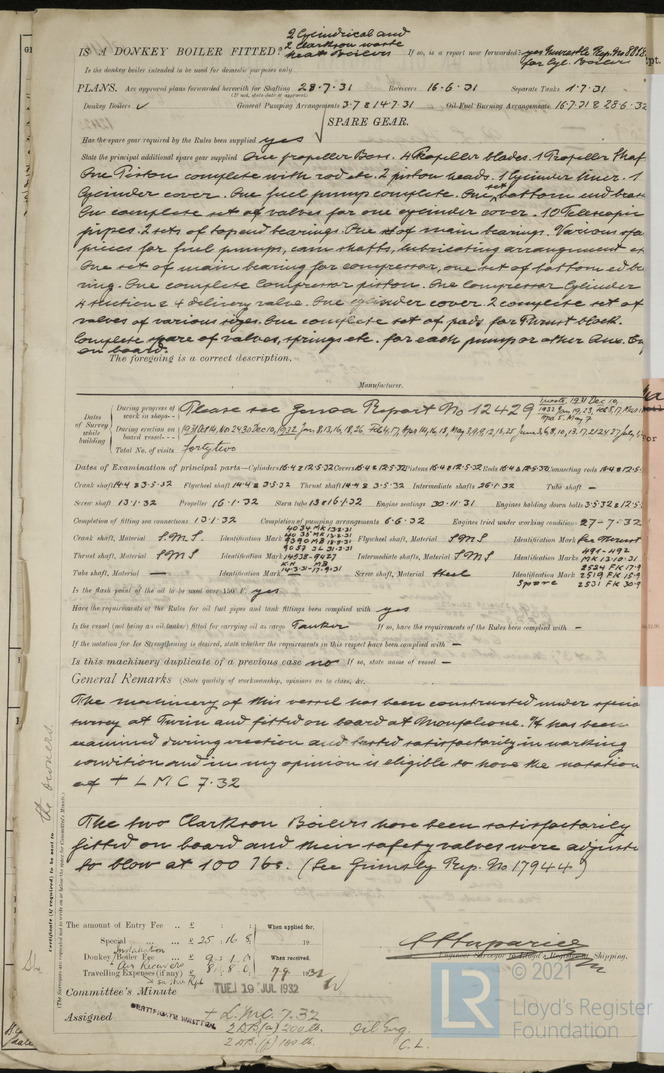 2 Cylindrical and
2 Clarkson waste
IS A DONKEY BOILER FITTED? heat Boilers If so, is a report now forwarded? yes Newcastle Rep. No
for Cyl. Boilers
Is the donkey boiler intended to be used for domestic purposes only
PLANS. Are approved plans forwarded herewith for Shafting 28.7.31 Receivers 16.6.31 Separate Tanks 1.7.31
(If not, state date of approval)
Donkey Boilers ✓ General Pumping Arrangements 3.7 & 14.7.31 Oil Fuel Burning Arrangements 16.7.31 & 28.6.32
SPARE GEAR.
Has the spare gear required by the Rules been supplied yes
State the principal additional spare gear supplied One propeller Boss. 4 Propeller blades. 1 Propeller Shaf
One Piston complete with rod etc. 2 piston heads. 1 Cylinder liner. 1
Cylinder cover. One fuel pump complete. One set bottom end bea
One complete set of valves for one cylinder cover. 10 Telescopic
pipes. 2 sets of top end bearings. One set of main bearings. Various spa
pieces for fuel pumps, cam shafts, lubricating arrangement e
One set of main bearing for compressor, one set of bottom end be
ring. One complete Compressor piston. One Compressor Cylinder
4 suction & 4 delivery valve. One cylinder cover. 2 complete set of
valves of various sizes. One complete set of pads for Thrust block.
Complete spare of valves, springs etc. for each pump or other Aux. E
on board.
The foregoing is a correct description.
Manufacturer.
Dates of Survey while building
During progress of work in shops - - Please see Genoa Report No 12429 Trieste, 1931 Dec 10,
During erection on board vessel - - 1931 Oct 14, Nov 24, 30 Dec 10, 1932 Jan. 8, 13, 16, 18, 26
Total No. of visits forty two
Dates of Examination of principal parts—Cylinders 16.4 & 12.5.32 Covers 16.4 & 12.5.32 Pistons 16.4 & 12.5.32 Rods 16.4 & 12.5.32 Connecting rods 16.4 & 12.5
Crank shaft 14.4 & 3.5.32 Flywheel shaft 14.4 & 3.5.32 Thrust shaft 14.4 & 3.5.32 Intermediate shafts 26.1.32 Tube shaft —
Screw shaft 13.1.32 Propeller 16.1.32 Stern tube 13 & 16.1.32 Engine seatings 30.11.31 Engines holding down bolts 3.5.32 & 12.5
Completion of fitting sea connections 13.1.32 Completion of pumping arrangements 6.6.32 Engines tried under working conditions 27.7.32
Crank shaft, Material S.M.S Identification Mark 4034 MK 13.2.31 Flywheel shaft, Material S.M.S Identification Mark See Thrust
Thrust shaft, Material S.M.S Identification Mark 14538-9427 Intermediate shafts, Material S.M.S Identification Marks 491-492
MK 13.10.31
2524 FK 17.9
Tube shaft, Material — Identification Mark — Screw shaft, Material Steel Identification Mark 2519 FK 15.9
Spare 2531 FK 30.9
Is the flash point of the oil to be used over 150°F. yes
Have the requirements of the Rules for oil fuel pipes and tank fittings been complied with yes
Is the vessel (not being an oil tanker) fitted for carrying oil as cargo Tanker If so, have the requirements of the Rules been complied with —
If the notation for Ice Strengthening is desired, state whether the requirements in this respect have been complied with —
Is this machinery duplicate of a previous case no If so, state name of vessel —
General Remarks (State quality of workmanship, opinions as to class, &c.
The machinery of this vessel has been constructed under specia
survey at Turin and fitted on board at Monfalcone. It has been
examined during erection and tested satisfactorily in working
condition and in my opinion is eligible to have the notation
of + L M C 7.32
The two Clarkson Boilers have been satisfactorily
fitted on board and their safety valves were adjuste
to blow at 100 lbs. (See Grimsby Rep. No 17944)
The amount of Entry Fee .. £ : : When applied for,
Special .. .. £ 25 : 16 : 8 19
Installation
Donkey Boiler Fee .. £ 9 : 1 : 0 When received,
Air Receivers
Travelling Expenses (if any) £ 8 : 8 : 0 7.9 1932
Engineer Surveyor to Lloyd's Register of Shipping.
Committee's Minute TUE 19 JUL 1932
Assigned + L.M.C. 7.32
CERTIFICATE WRITTEN
2 D.B.(a) 200 lb. Oil Eng.
2 D.B. (f) 100 lb. C.L.
Certificate (if required) to be sent to the owners.
(The Surveyors are requested not to write on or below the space for Committee's Minute.)
© 2021
LR
Lloyd's Register
Foundation